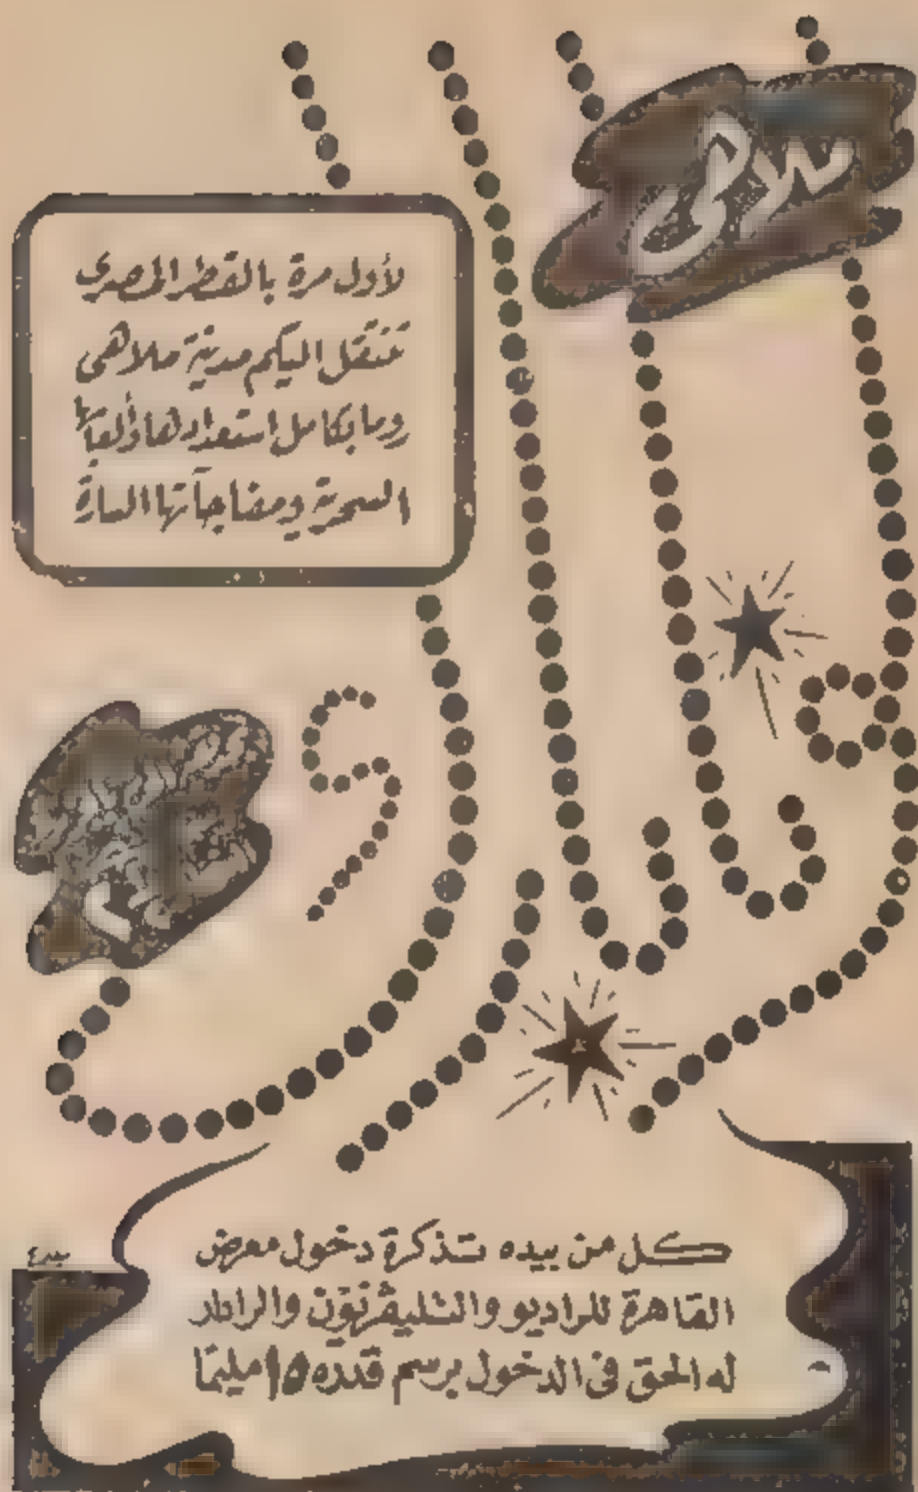 ملاهى
لأول مرة بالقطر المصرى
تنتقل اليكم مدينة ملاهى
روما بكامل استعدادها وألعابها
السحرية ومفاجآتها السارة
كل من بيده تذكرة دخول معرض
القاهرة للراديو والتليفزيون والرادار
له الحق فى الدخول برسم قدره ١٥ مليمًا